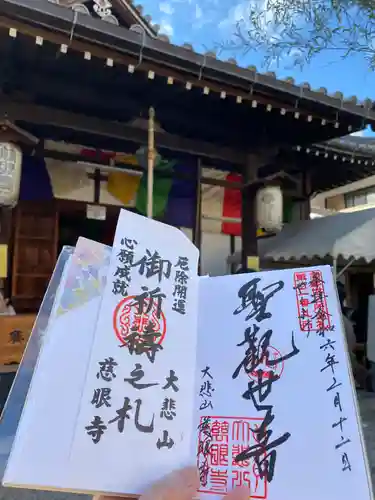 奉拝 令和六年二月十二日
聖観世音
大悲山 慈眼寺
厄除開運
御祈禱之札
心願成就
大悲山
慈眼寺